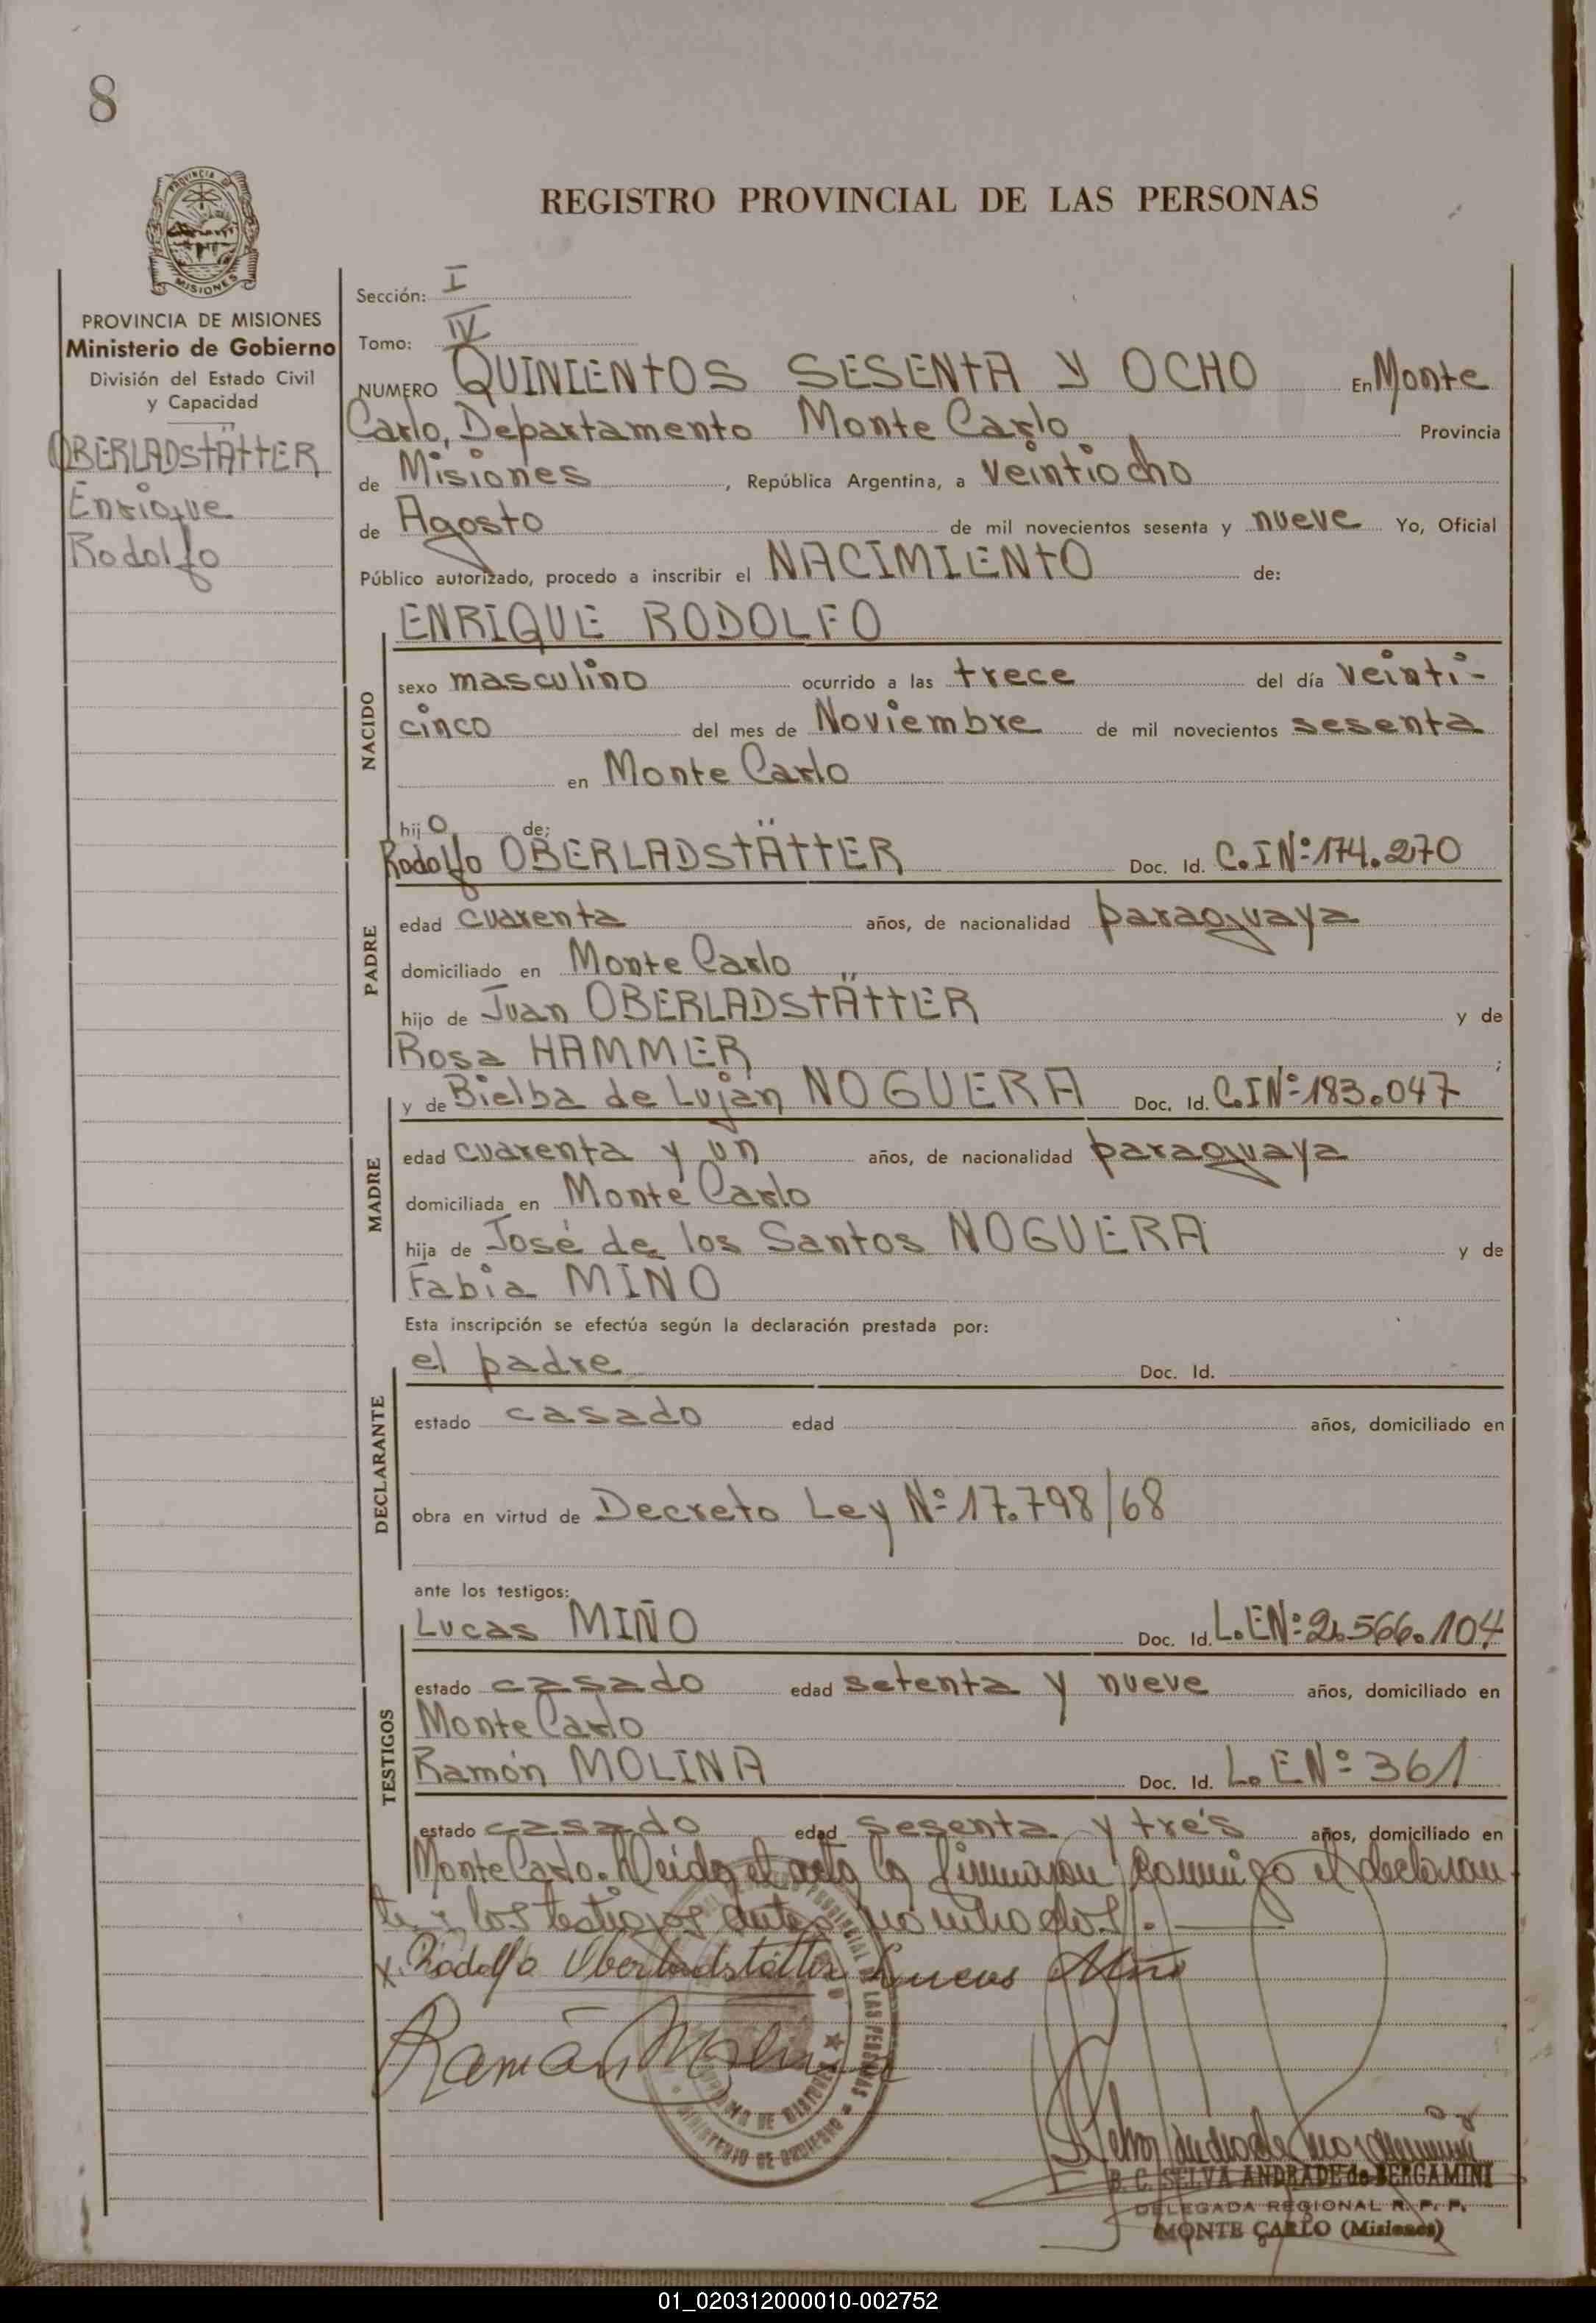 8
PROVINCIA DE
MISIONES
REGISTRO PROVINCIAL DE LAS PERSONAS
PROVINCIA DE MISIONES
Ministerio de Gobierno
División del Estado Civil
y Capacidad
OBERLADSTÄTTER
Enrique
Rodolfo
Sección: I
Tomo: IV
NUMERO QUINIENTOS SESENTA Y OCHO En Monte
Carlo, Departamento Monte Carlo Provincia
de Misiones, República Argentina, a veintiocho
de Agosto de mil novecientos sesenta y nueve Yo, Oficial
Público autorizado, procedo a inscribir el NACIMIENTO de:
NACIDO
ENRIQUE RODOLFO
sexo masculino ocurrido a las trece del día veinti-
cinco del mes de Noviembre de mil novecientos sesenta
en Monte Carlo
hijo de:
PADRE
Rodolfo OBERLADSTÄTTER Doc. Id. C.I Nº 174.270
edad cuarenta años, de nacionalidad paraguaya
domiciliado en Monte Carlo
hijo de Juan OBERLADSTÄTTER y de
Rosa HAMMER ;
MADRE
y de Bielba de Luján NOGUERA Doc. Id. C.I Nº 183.047
edad cuarenta y un años, de nacionalidad paraguaya
domiciliada en Monte Carlo
hija de José de los Santos NOGUERA y de
Fabia MIÑO
Esta inscripción se efectúa según la declaración prestada por:
DECLARANTE
el padre Doc. Id.
estado casado edad años, domiciliado en
obra en virtud de Decreto Ley Nº 17.798/68
ante los testigos:
TESTIGOS
Lucas MIÑO Doc. Id. L.E Nº 2.566.104
estado casado edad setenta y nueve años, domiciliado en
Monte Carlo
Ramón MOLINA Doc. Id. L.E Nº 361
estado casado edad sesenta y trés años, domiciliado en
Monte Carlo. Leída el acta la firmaron conmigo el declaran
te y los testigos antes nombrados.
x Rodolfo Oberladstätter Lucas Miño
Ramón Molina
PROVINCIAL DE LAS PERSONAS
MINISTERIO DE GOBIERNO
B. C. SELVA ANDRADE de BERGAMINI
DELEGADA REGIONAL R. P. P.
MONTE CARLO (Misiones)
01_020312000010-002752